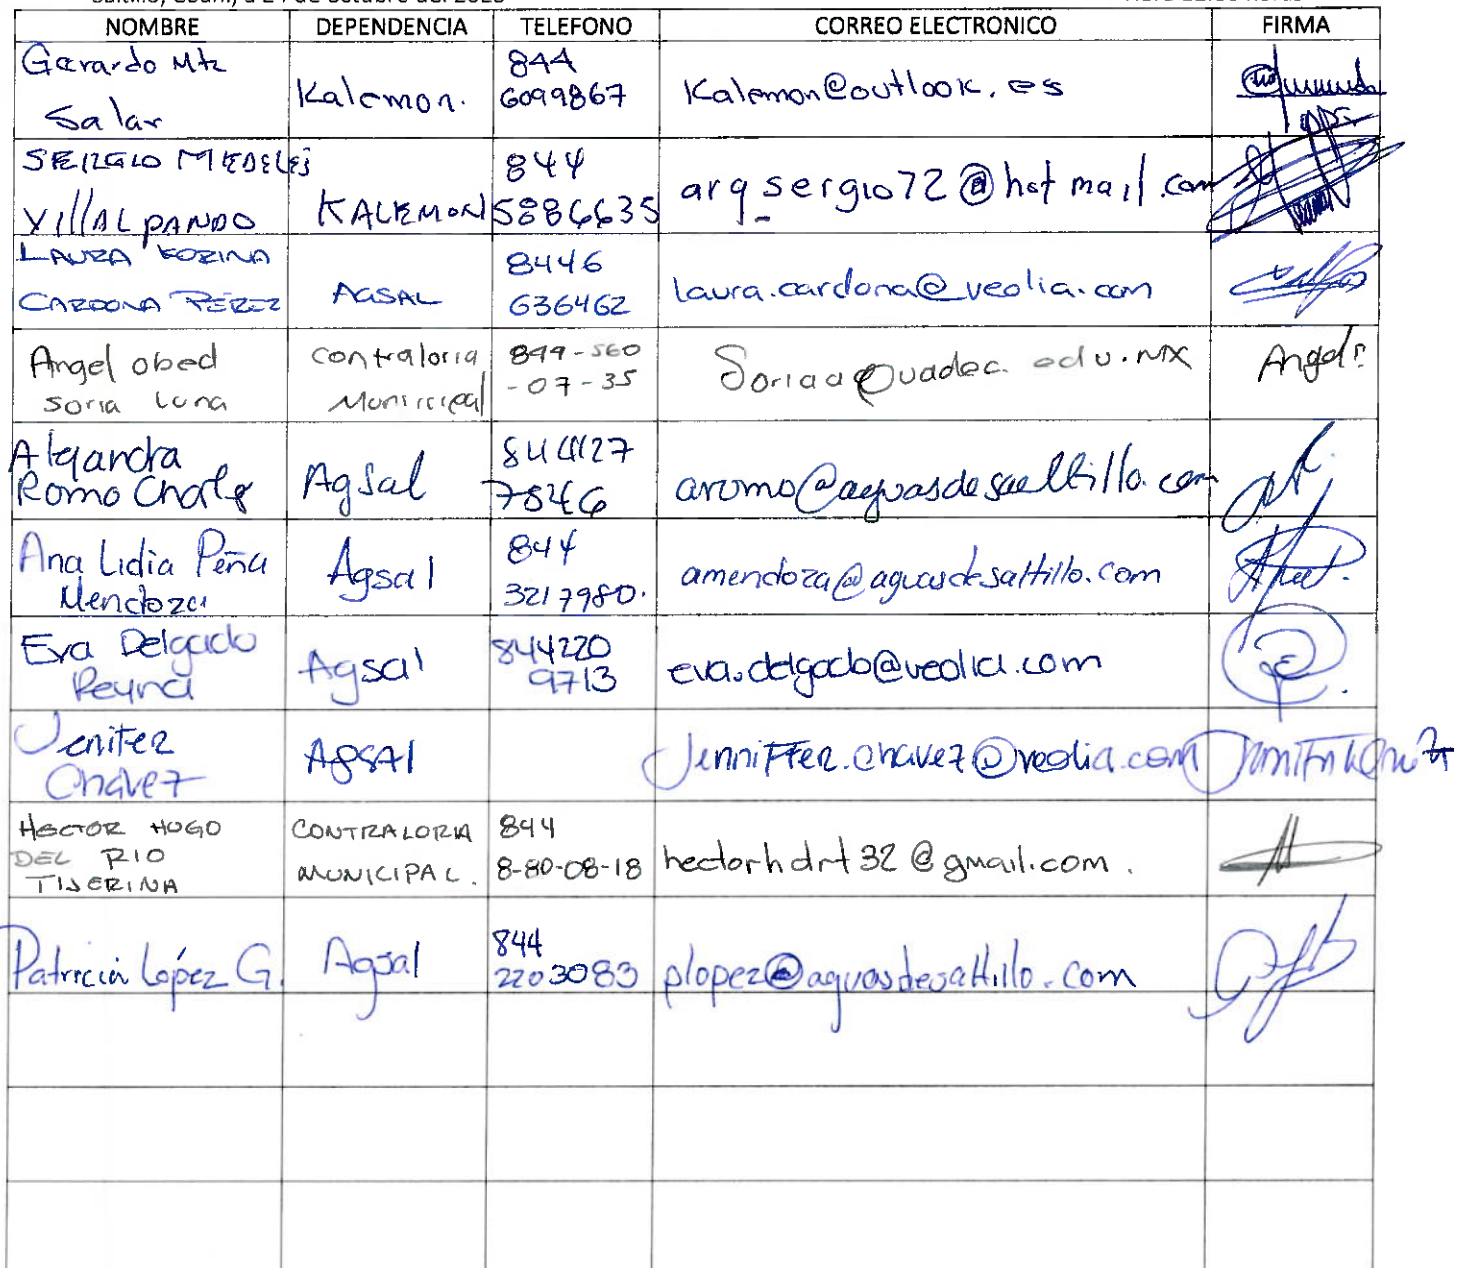 NOMBRE DEPENDENCIA TELEFONO CORREO ELECTRONICO FIRMA
Gerardo Mtz
Salar
Kalemon.
844
6099867
Kalemon@outlook.es
SERGIO MEDELES
VILLALPANDO
KALEMON
844
5886635
arq_sergio72@hotmail.com
LAURA
CARDONA PÉREZ
AGSAL
8446
636462
laura.cardona@veolia.com
Angel obed
Soria Luna
Contraloria
Municipal
844-560
-07-35
Soriaa@uadec.edu.mx
Angel
Alejandra
Romo
Agsal
844127
7846
aromo@aguasdesaltillo.com
Ana Lidia Peña
Mendoza
Agsal
844
3217980.
amendoza@aguasdesaltillo.com
Eva Delgado
Reyna
Agsal
844220
9713
eva.delgado@veolia.com
Jenifer
Chavez
AGSAl
Jenniffer.chavez@veolia.com
HECTOR HUGO
DEL RIO
TIJERINA
CONTRALORIA
MUNICIPAL.
844
8-80-08-18
hectorhdrt32@gmail.com.
Patricia López G.
Agsal
844
2203083
plopez@aguasdesaltillo.com